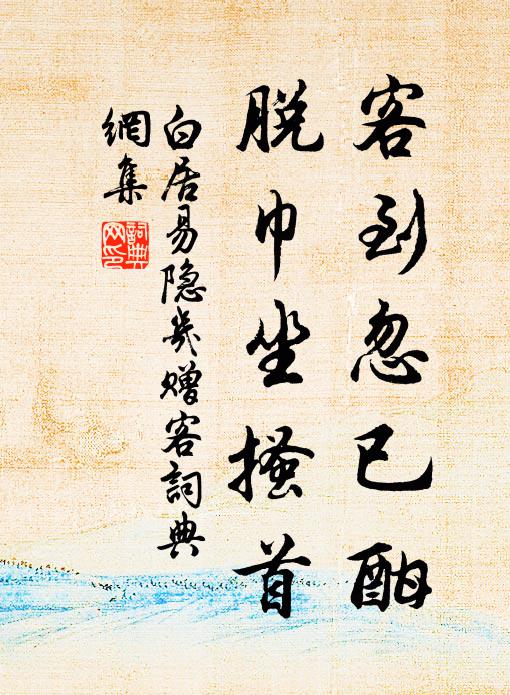 客到忽已酣
脱巾坐搔首
白居易隐几赠客词典
網集
詞典網印